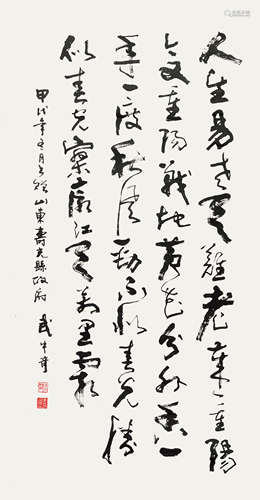 人生易老天難老歲々重陽
今又重陽戰地黄花分外香一
年一度秋風勁不似春光勝
似春光寥廓江天萬里霜
甲戌年五月书於山東壽光縣政府 武中奇